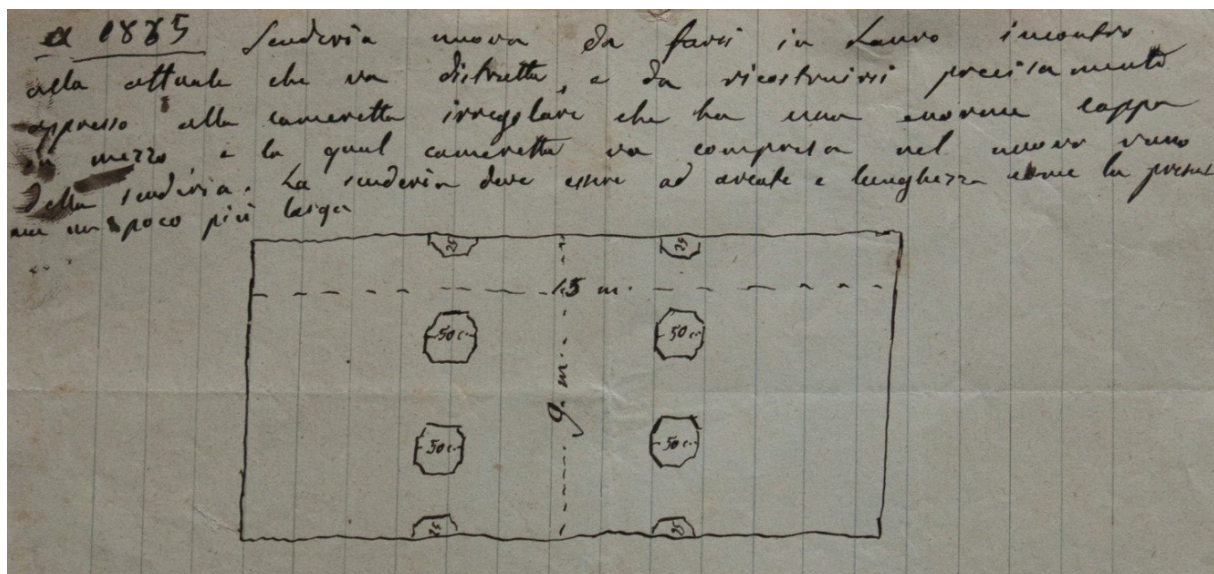 1885 Scuderia nuova da farsi in Lauro incontro
alla attuale che va distrutta, e da ricostruirsi precisamente
appresso alla cameretta irregolare che ha una enorme cappa
in mezzo, e la qual cameretta va compresa nel nuovo vano
della scuderia. La scuderia deve essere ad arcate e lunghezza come la presente
ma un poco più larga
25 25
15 m.
50 c. 50 c.
9. m.
50 c. 50 c.
25 25